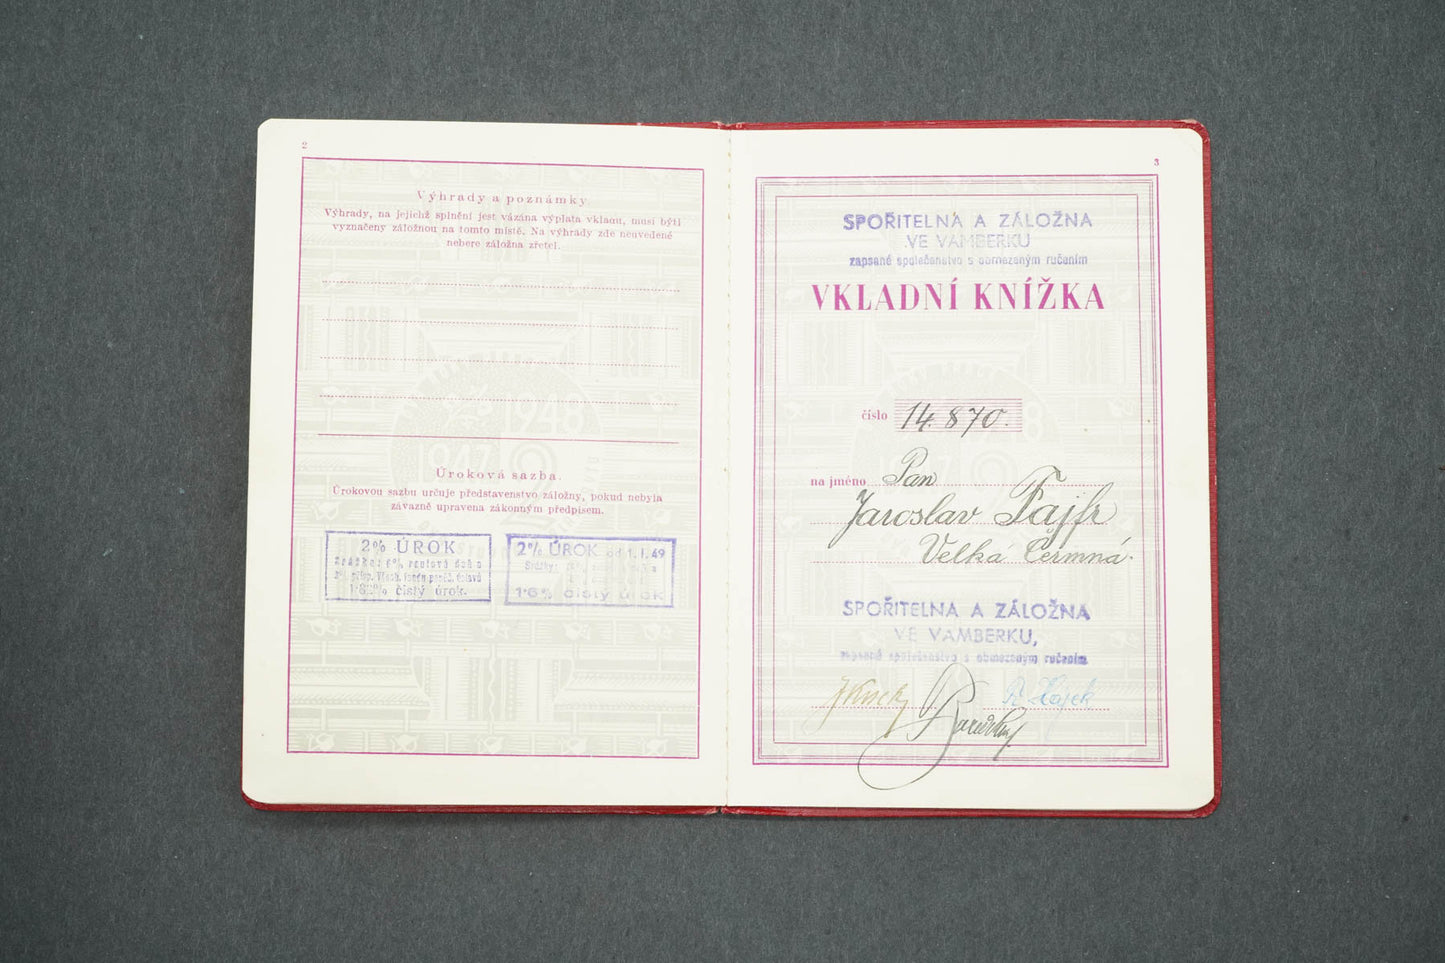 2
Výhrady a poznámky.
Výhrady, na jejichž splnění jest vázána výplata vkladu, musí býti
vyznačeny záložnou na tomto místě. Na výhrady zde neuvedené
nebere záložna zřetel.
1948
1947
2
Úroková sazba.
Úrokovou sazbu určuje představenstvo záložny, pokud nebyla
závazně upravena zákonným předpisem.
2% ÚROK
čistý úrok.
2% ÚROK od 1.I.49
Srážky:
1·6% čistý úrok
3
SPOŘITELNA A ZÁLOŽNA
VE VAMBERKU
zapsané společenstvo s obmezeným ručením
VKLADNÍ KNÍŽKA
číslo 14.870.
na jméno Pan
Jaroslav Fajfr
Velká Čermná.
SPOŘITELNA A ZÁLOŽNA
VE VAMBERKU,
zapsané společenstvo s obmezeným ručením